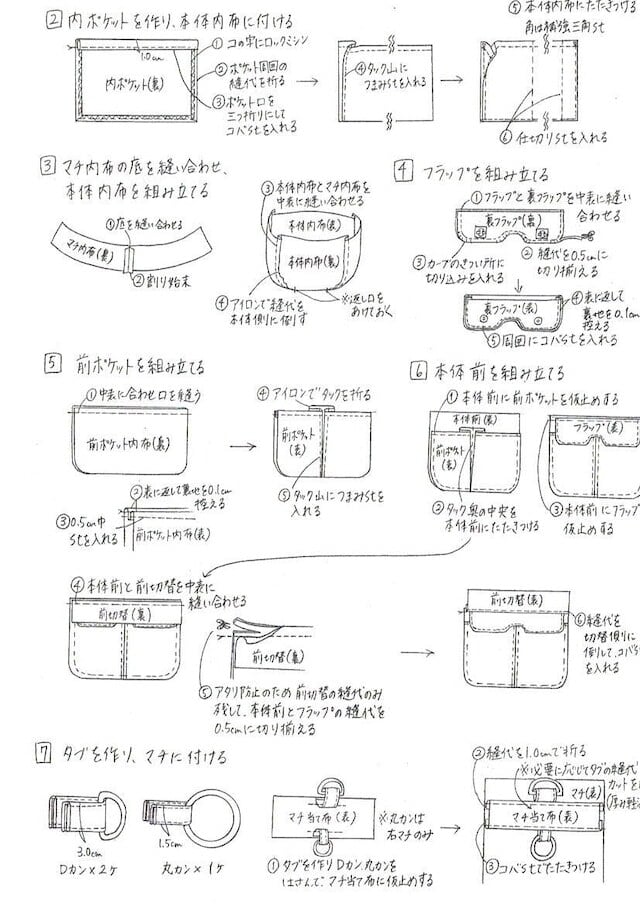 2 内ポケットを作り、本体内布に付ける
①コの字にロックミシン
1.0cm
②ポケット周囲の
縫代を折る
内ポケット(裏)
③ポケット口を
三ツ折りにして
コバstを入れる
④タック山に
つまみstを入れる
⑤本体内布にたたきつける
角は補強三角st
⑥仕切りstを入れる
3 マチ内布の底を縫い合わせ、
本体内布を組み立てる
①底を縫い合わせる
マチ内布(裏)
②割り始末
③本体内布とマチ内布を
中表に縫い合わせる
本体内布(表)
本体内布(裏)
④アイロンで縫代を
本体側に倒す
※返し口を
あけておく
4 フラップを組み立てる
①フラップと裏フラップを中表に縫い
合わせる
裏フラップ(裏)
②縫代を0.5cmに
切り揃える
③カーブのきつい所に
切り込みを入れる
裏フラップ(表)
④表に返して
裏地を0.1cm
控える
⑤周囲にコバstを入れる
5 前ポケットを組み立てる
①中表に合わせ口を縫う
前ポケット内布(裏)
②表に返して裏地を0.1cm
控える
③0.5cm巾
stを入れる
前ポケット内布(表)
④アイロンでタックを折る
前ポケット
(表)
⑤タック山につまみstを
入れる
6 本体前を組み立てる
①本体前に前ポケットを仮止めする
本体前(表)
前ポケット
(表)
②タック奥の中央を
本体前にたたきつける
フラップ(表)
③本体前にフラップ
仮止めする
④本体前と前切替を中表に
縫い合わせる
前切替(裏)
前切替(裏)
⑤アタリ防止のため前切替の縫代のみ
残して、本体前とフラップの縫代を
0.5cmに切り揃える
前切替(表)
⑥縫代を
切替側に
倒して、コバst
を入れる
7 タブを作り、マチに付ける
3.0cm
Dカン×2ケ
1.5cm
丸カン×1ケ
マチ当て布(表)
※丸カンは
右マチのみ
①タブを作りDカン、丸カンを
はさんで、マチ当て布に仮止めする
②縫代を1.0cmで折る
※必要に応じてタブの縫代
カットを
マチ(表)
マチ当て布(表)
③コバstでたたきつける